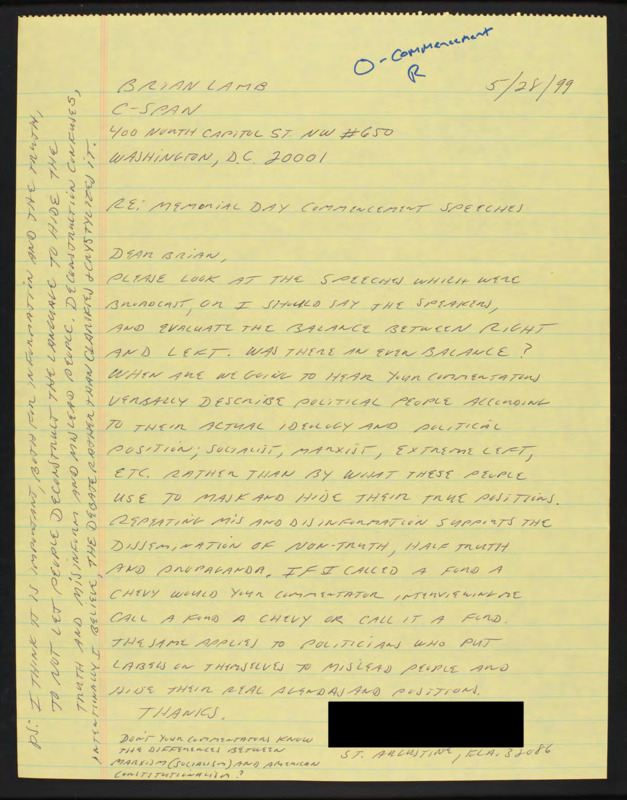 O - Commencement
R
5/28/99
BRIAN LAMB
C-SPAN
400 NORTH CAPITOL ST. NW #650
WASHINGTON, D.C. 20001
RE: MEMORIAL DAY COMMENCEMENT SPEECHES
DEAR BRIAN,
PLEASE LOOK AT THE SPEECHES WHICH WERE
BROADCAST, OR I SHOULD SAY THE SPEAKERS,
AND EVALUATE THE BALANCE BETWEEN RIGHT
AND LEFT. WAS THERE AN EVEN BALANCE?
WHEN ARE WE GOING TO HEAR YOUR COMMENTATORS
VERBALLY DESCRIBE POLITICAL PEOPLE ACCORDING
TO THEIR ACTUAL IDEOLOGY AND POLITICAL
POSITION; SOCIALIST, MARXIST, EXTREME LEFT,
ETC. RATHER THAN BY WHAT THESE PEOPLE
USE TO MASK AND HIDE THEIR TRUE POSITIONS.
REPEATING MIS AND DISINFORMATION SUPPORTS THE
DISSEMINATION OF NON-TRUTH, HALF TRUTH
AND PROPAGANDA. IF I CALLED A FORD A
CHEVY WOULD YOUR COMMENTATOR INTERVIEWING ME
CALL A FORD A CHEVY OR CALL IT A FORD.
THE SAME APPLIES TO POLITICIANS WHO PUT
LABELS ON THEMSELVES TO MISLEAD PEOPLE AND
HIDE THEIR REAL AGENDAS AND POSITIONS.
THANKS.
ST. AUGUSTINE, FLA. 32086
DON'T YOUR COMMENTATORS KNOW
THE DIFFERENCES BETWEEN
MARXISM (SOCIALISM) AND AMERICAN
CONSTITUTIONALISM?
PS: I THINK IT IS IMPORTANT BOTH FOR INFORMATION AND THE TRUTH,
TO NOT LET PEOPLE DECONSTRUCT THE LANGUAGE TO HIDE THE
TRUTH AND MISINFORM AND MISLEAD PEOPLE. DECONSTRUCTION CONFUSES,
INTENTIONALLY I BELIEVE, THE DEBATE RATHER THAN CLARIFIES & CRYSTYLIZES IT.